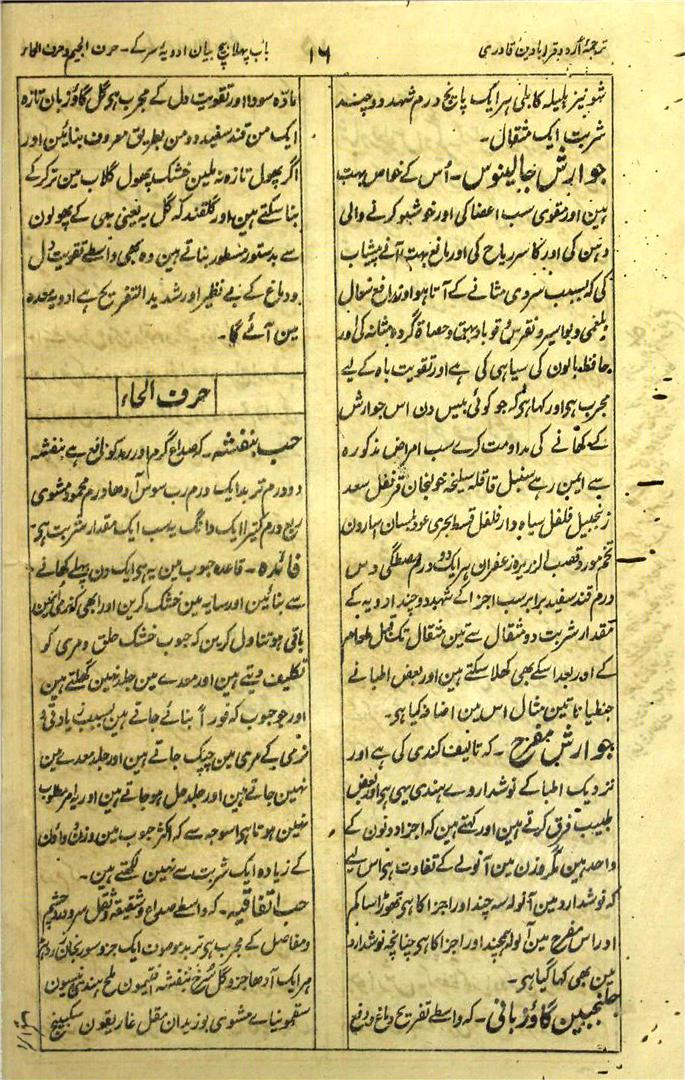 ترجمۂ اُردو قرابادین قادری
۱۶
باب پہلا بیچ بیان ادویہ سر کے - حرف الجیم و حرف الحاء
شونیز ہلیلہ کابلی ہر ایک پانچ درم شہد دو چند
شربت ایک مثقال۔
جوارش جالینوس۔ اُس کے خواص بہت
ہین اور مقوی سب اعضا کی اور خوشبو کرنے والی
دہن کی اور کاسر ریاح کی اور مانع بہت آنے پیشاب
کی کہ بسبب سردی مثانے کے آتا ہو اور نافع سعال
بلغمی و بواسیر و نقرس و قوبا و بہق و حصاۃ گردہ و مثانہ کی اور
حافظ بالون کی سیاہی کی ہے اور تقویت باہ کے لیے
مجرب ہی اور کہا ہی کہ جو کوئی بیس دن اس جوارش
کے کھانے کی مداومت کرے سب امراض مذکورہ
سے ایمن رہے سنبل قاقلہ سلیخہ خولنجان قرنفل سعد
زنجبیل فلفل سیاہ دار فلفل قسط بحری عود بلسان اسارون
تخم مورد قصب الزریرہ زعفران ہر ایک دو درم مصطگی دس
درم قند سفید برابر سب اجزا کے شہد دو چند ادویہ کے
مقدار شربت دو مثقال سے تین مثقال تک قبل طعام
کے اور بعد اسکے بھی کھلا سکتے ہین اور بعض اطبا نے
جنطیانا تین مثقال اس مین اضافہ کیا ہی۔
جوارش مفرح۔ کہ تالیف کندی کی ہے اور
نزدیک اطبا کے نوشدارو ے ہندی یہی ہی اور بعض
طبیب فرق کرتے ہین اور کہتے ہین کہ اجزا دونون کے
واحد ہین مگر وزن مین آنولے کے تفاوت ہی اس لیے
کہ نوشدارو مین آنولہ سہ چند اور اجزا کا ہی تھوڑا سا کم
اور اس مفرح مین آنولہ ہمچند اور اجزا کا ہی چنانچہ نوشدارو
مین بھی کہا گیا ہی۔
جلنجبین گاؤزبانی۔ کہ واسطے تفریح دماغ و دفع
مادّہ سودا اور تقویت دل کے مجرب ہی گل گاؤزبان تازہ
ایک من قند سفید دو من بطریق معروف بنائین اور
اگر پھول تازہ نہ ملین خشک پھول گلاب مین تر کر کے
بنا سکتے ہین اور گلقند کہ گل بہ یعنی بہی کے پھولون
سے بدستور مسطور بناتے ہین وہ بھی واسطے تقویت دل
و دماغ کے بے نظیر اور شدید التفریح ہے ادویہ معدہ
مین آئے گا۔
حرف الحاء
حب بنفشہ۔ کہ صداع گرم اور رمد کو نافع ہے بنفشہ
دو درم تربد ایک درم رب سوس آدھا درم محمودہ مشوی
ربع درم کتیرا ایک دانگ یہ سب ایک مقدار شربت ہی۔
فائدہ۔ قاعدہ حبوب مین یہ ہی ایک دن پہلے کھانے
سے بنائین اور سایہ مین خشک کرین اور ابھی کچھ نرمی انمین
باقی ہو تناول کرین کہ حبوب خشک حلق و مری کو
تکلیف دیتے ہین اور معدے مین جلد نہین گھلتے ہین
اور جو حبوب کہ فوراً بنائے جاتے ہین بسبب زیادتی
نرمی کے مری مین چپک جاتے ہین اور جلد معدے مین
نہین جاتے ہین اور جلد حل ہو جاتے ہین اور یہ امر مطلوب
نہین ہوتا ہی اسوجہ سے کہ اکثر حبوب مین وزن دواؤن
کے زیادہ ایک شربت سے نہین لکھتے ہین۔
حب اتفاقیہ۔ کہ واسطے صداع و شقیقہ و ثقل سر و درد چشم
و مفاصل کے مجرب ہی تربد موصوف ایک جزو سورنجان
ہر ایک آدھا جزو گل سُرخ بنفشہ افتیمون ملح ہندی انیسون
سقمونیاے مشوی بوزیدان مقل غاریقون سکبینج